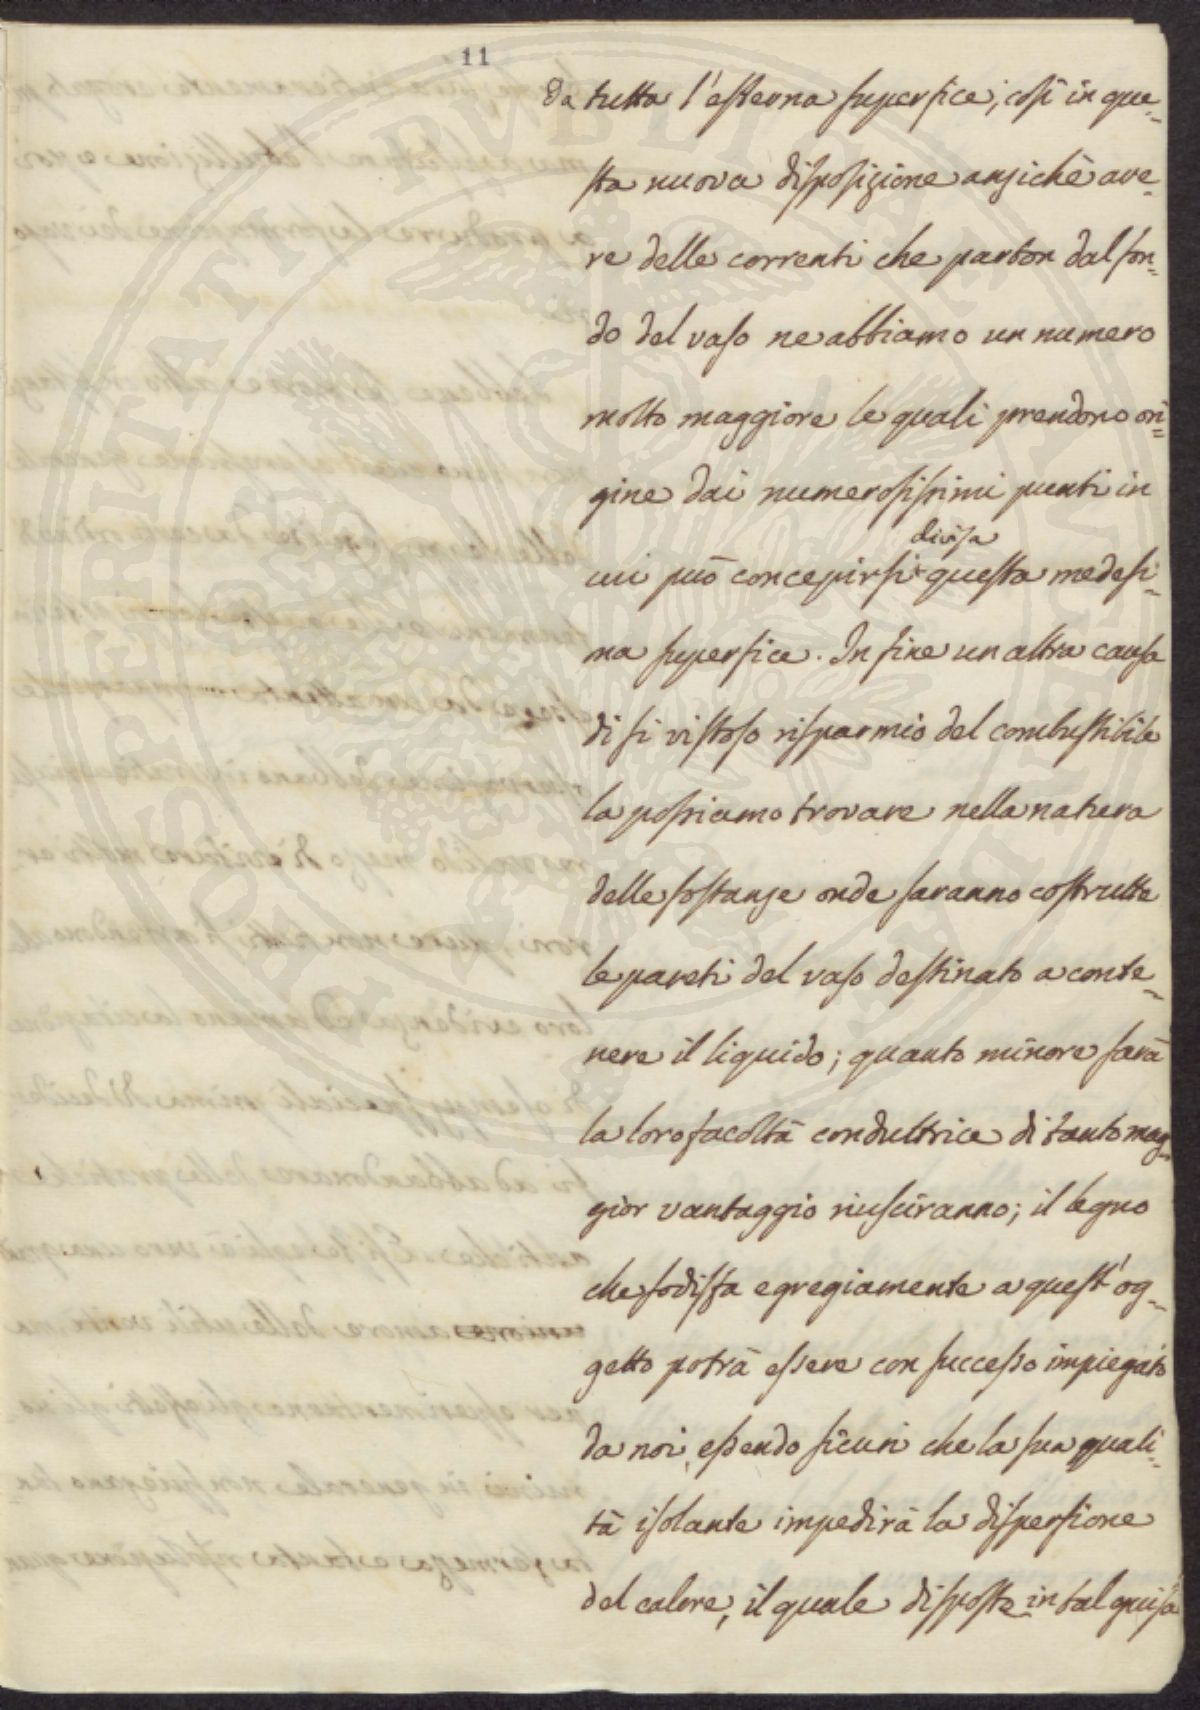 11
da tutta l'esterna superfice; così in que=
sta nuova disposizione anzichè ave=
re delle correnti che parton dal fon=
do del vaso ne abbiamo un numero
molto maggiore le quali prendono ori=
gine dai numerosissimi punti in
divisa
cui può concepirsi questa medesi=
ma superfice. In fine un altra causa
di si vistoso risparmio del combustibile
la possiamo trovare nella natura
delle sostanze onde saranno costrutte
le pareti del vaso destinato a conte=
nere il liquido; quanto minore sarà
la loro facoltà conduttrice di tanto mag=
gior vantaggio riusciranno; il legno
che sodisfa egregiamente a quest'og=
getto potrà essere con successo impiegato
da noi, essendo sicuri che la sua quali=
tà isolante impedirà la dispersione
del calore, il quale disposte in tal guisa
PROSPERITATI PVBLICAE AVGENDAE